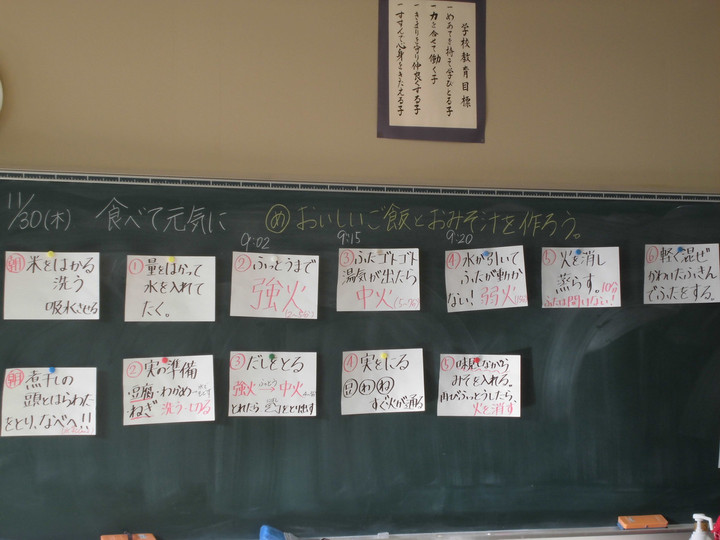 学校教育目標
一 めあてを持って学びとる子
一 力を合わせて働く子
一 きまりを守り仲良くする子
一 すすんで心身をきたえる子
11/30(木) 食べて元気に
め おいしいご飯とおみそ汁を作ろう。
9:02
9:15
9:20
米をはかる
洗う
吸水させる
① 量をはかって
水を入れて
たく。
② ふっとうまで
強火
③ ふたゴトゴト
湯気が出たら
中火(5〜7分)
④ 水が引いて
ふたが動か
ない!弱火
⑤ 火を消し
蒸らす。10分
ふたは開けない!
⑥ 軽く混ぜ
かわいたふきん
でふたをする。
煮干しの
頭とはらわた
をとり、なべへ!!
② 実の準備
・豆腐・わかめ
・ねぎ 洗う・切る
③ だしをとる
強火→中火
ふっとう
とれたら をとり出す
④ 実をにる
と わ ね
すぐ火が通る
⑤ 味見しながら
みそを入れる。
ふっとうしたら、
火を消す